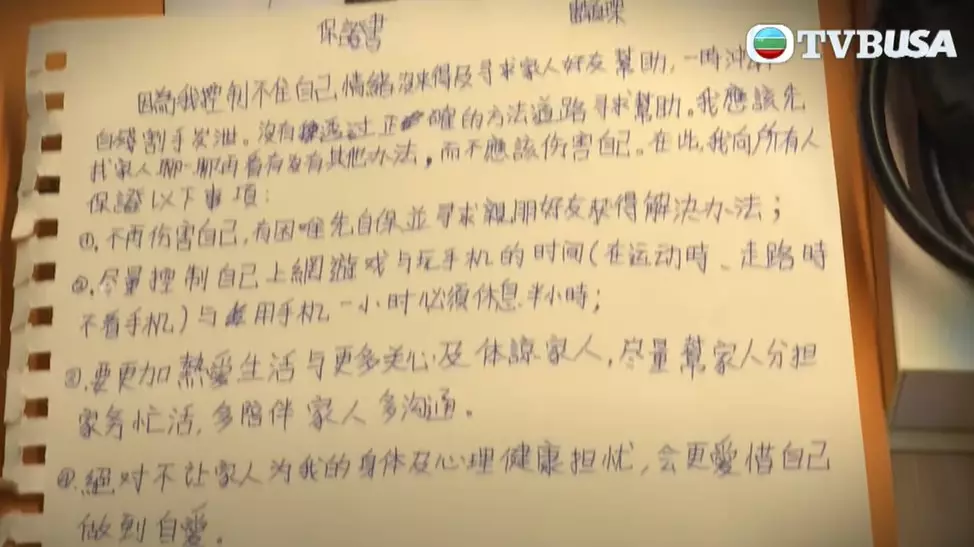 保證書
TVBUSA
因為我控制不住自己情緒沒來得及尋求家人好友幫助，一時沖
自殘割手发泄。沒有透过正確的方法道路寻求幫助。我應該先
找家人聊一聊再看有沒有其他办法，而不應該伤害自己。在此，我向所有人
保證以下事項：
①，不再伤害自己，有困难先自保並寻求親朋好友获得解决办法；
②，尽量控制自己上網遊戏与玩手机的时间（在运动時、走路時
不看手机）与使用手机一小时必须休息半小時；
③，要更加熱愛生活与更多关心及体諒家人，尽量幫家人分担
家务忙活，多陪伴家人多沟通。
④，絕对不让家人为我的身体及心理健康担忧，会更愛惜自己
做到自愛。